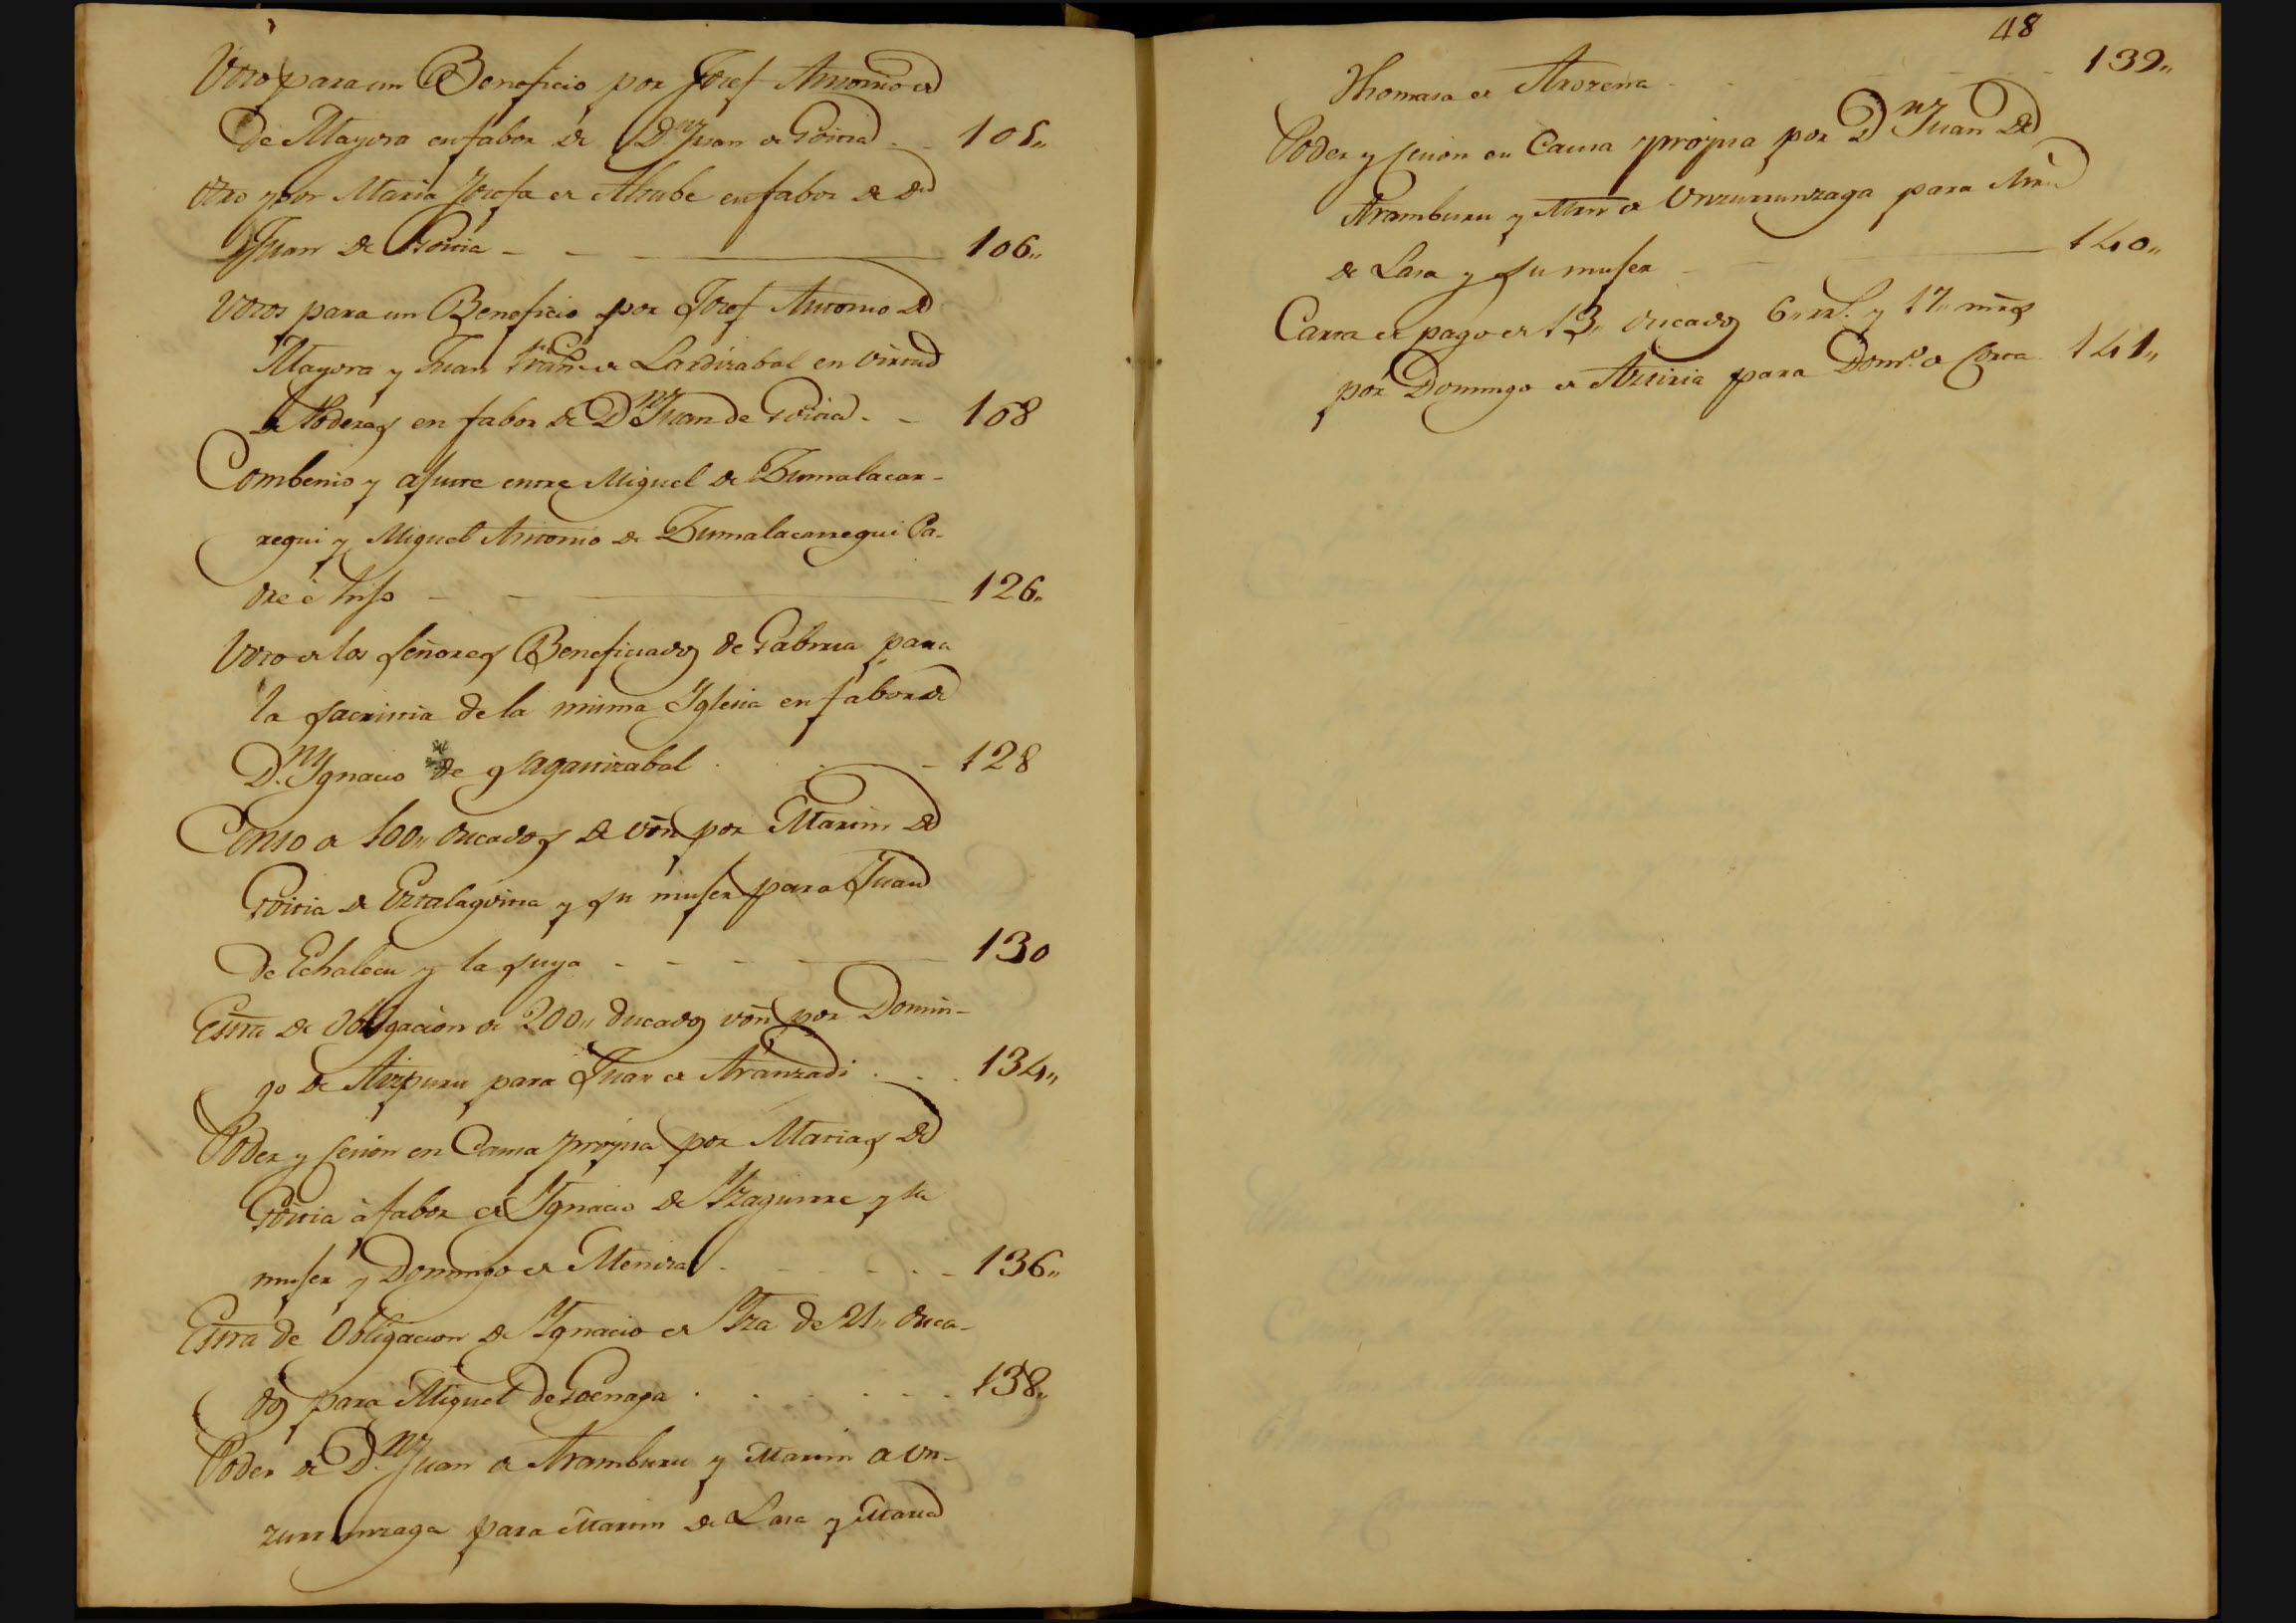 Voto para un Beneficio por Josef Antonio de
de Mayora en fabor de D.n Juan de Goitia 105,,
Otro por Maria Josefa de Alzube en fabor de dn
Juan de Goitia 106,,
Votos para un Beneficio por Josef Antonio de
Mayora y Juan Fran.co de Lardizabal en virtud
de Poderes en fabor de D.n Juan de Goitia 108
Combenio y ajuste entre Miguel de Zumalacar-
regui y Miguel Antonio de Zumalacarregui Pa-
dre è hijo 126,,
Voto de los señores Beneficiados de Gabiria para
la sacristia de la misma Iglesia en fabor de
D.n Ygnacio de Sagastizabal 128
Censo de 100,, ducados de von por Martin de
Goitia de Estalagoitia y su muger para Juan
de Echalecu y la suya 130
Esra de Obligacion de 200,, ducados von por Domin-
go de Aizpuru para Juan de Aranzadi 134,,
Poder y cesion en Causa propria por Matias de
Goitia à fabor de Ygnacio de Yzaguirre y su
muger y Domingo de Mendia 136,,
Esra de Obligacion de Ygnacio de Yza de 21,, duca-
dos para Miguel de Goenaga 138,,
Poder de D.n Juan de Aramburu y Martin de Un-
zurrunzaga para Martin de Lasa y Maria
48
Thomasa de Arozena 139,,
Poder y cesion en Causa propria por D.n Juan de
Aramburu y Mrn de Unzurrunzaga para Mrn
de Lasa y su muger 140,,
Carta de pago de 13,, ducados 6,, rr.s y 17,, mrs
por Domingo de Aztiria para Dom.o de Corta 141,,